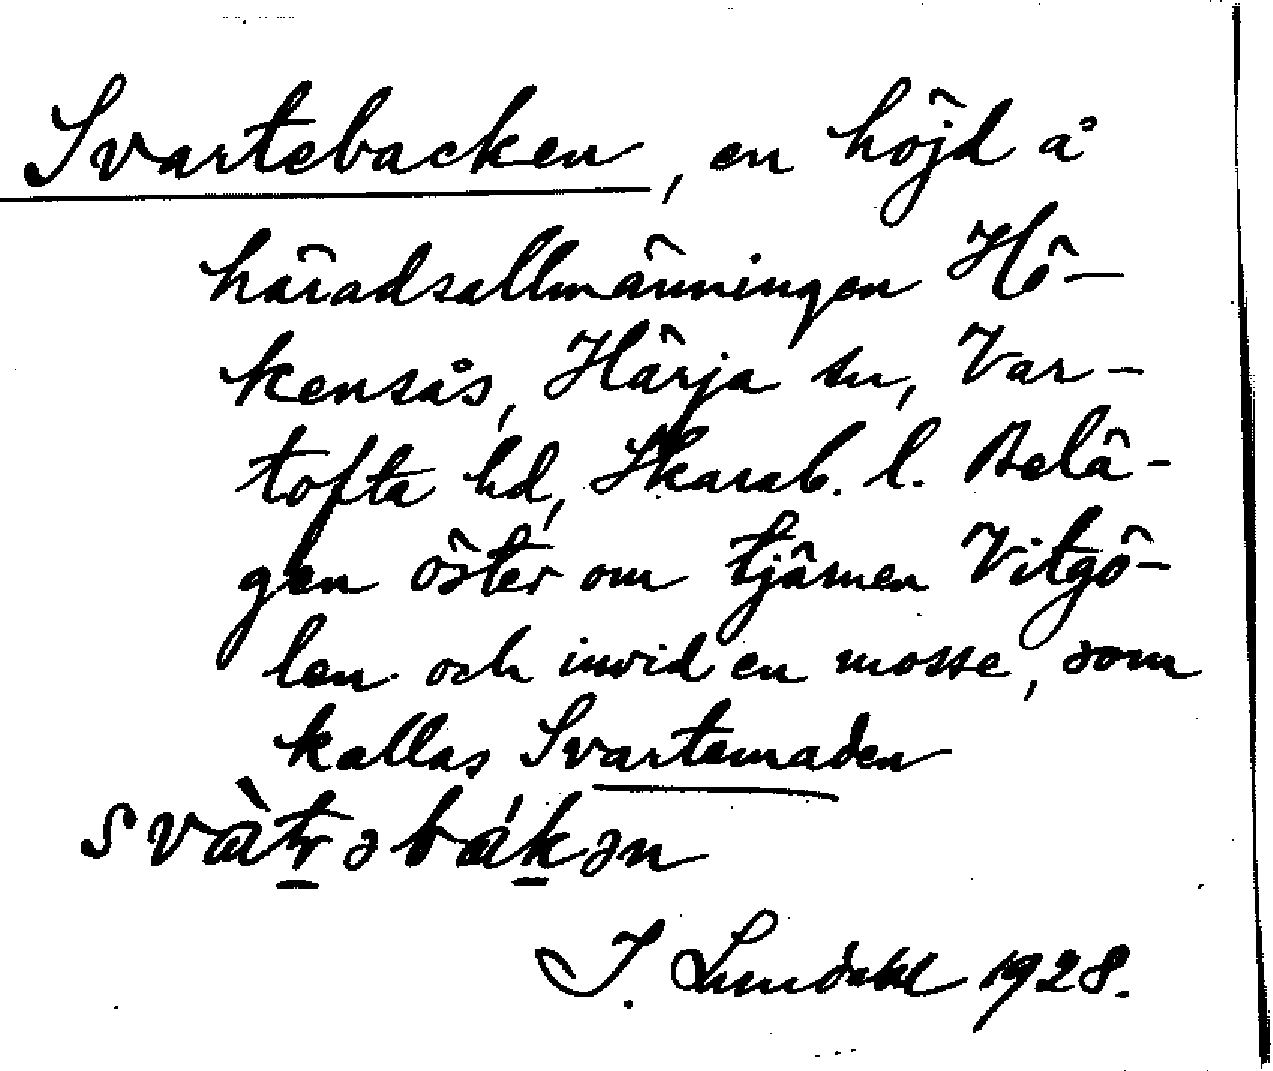 Svartebacken, en höjd å
häradsallmänningen Hö-
kensås, Härja sn, Var-
tofta hd, Skarab. l. Belä-
gen öster om tjärnen Vitgö-
len och invid en mosse, som
kallas Svartemaden
svàt̠əbák̠ən
I. Lundahl 1928.